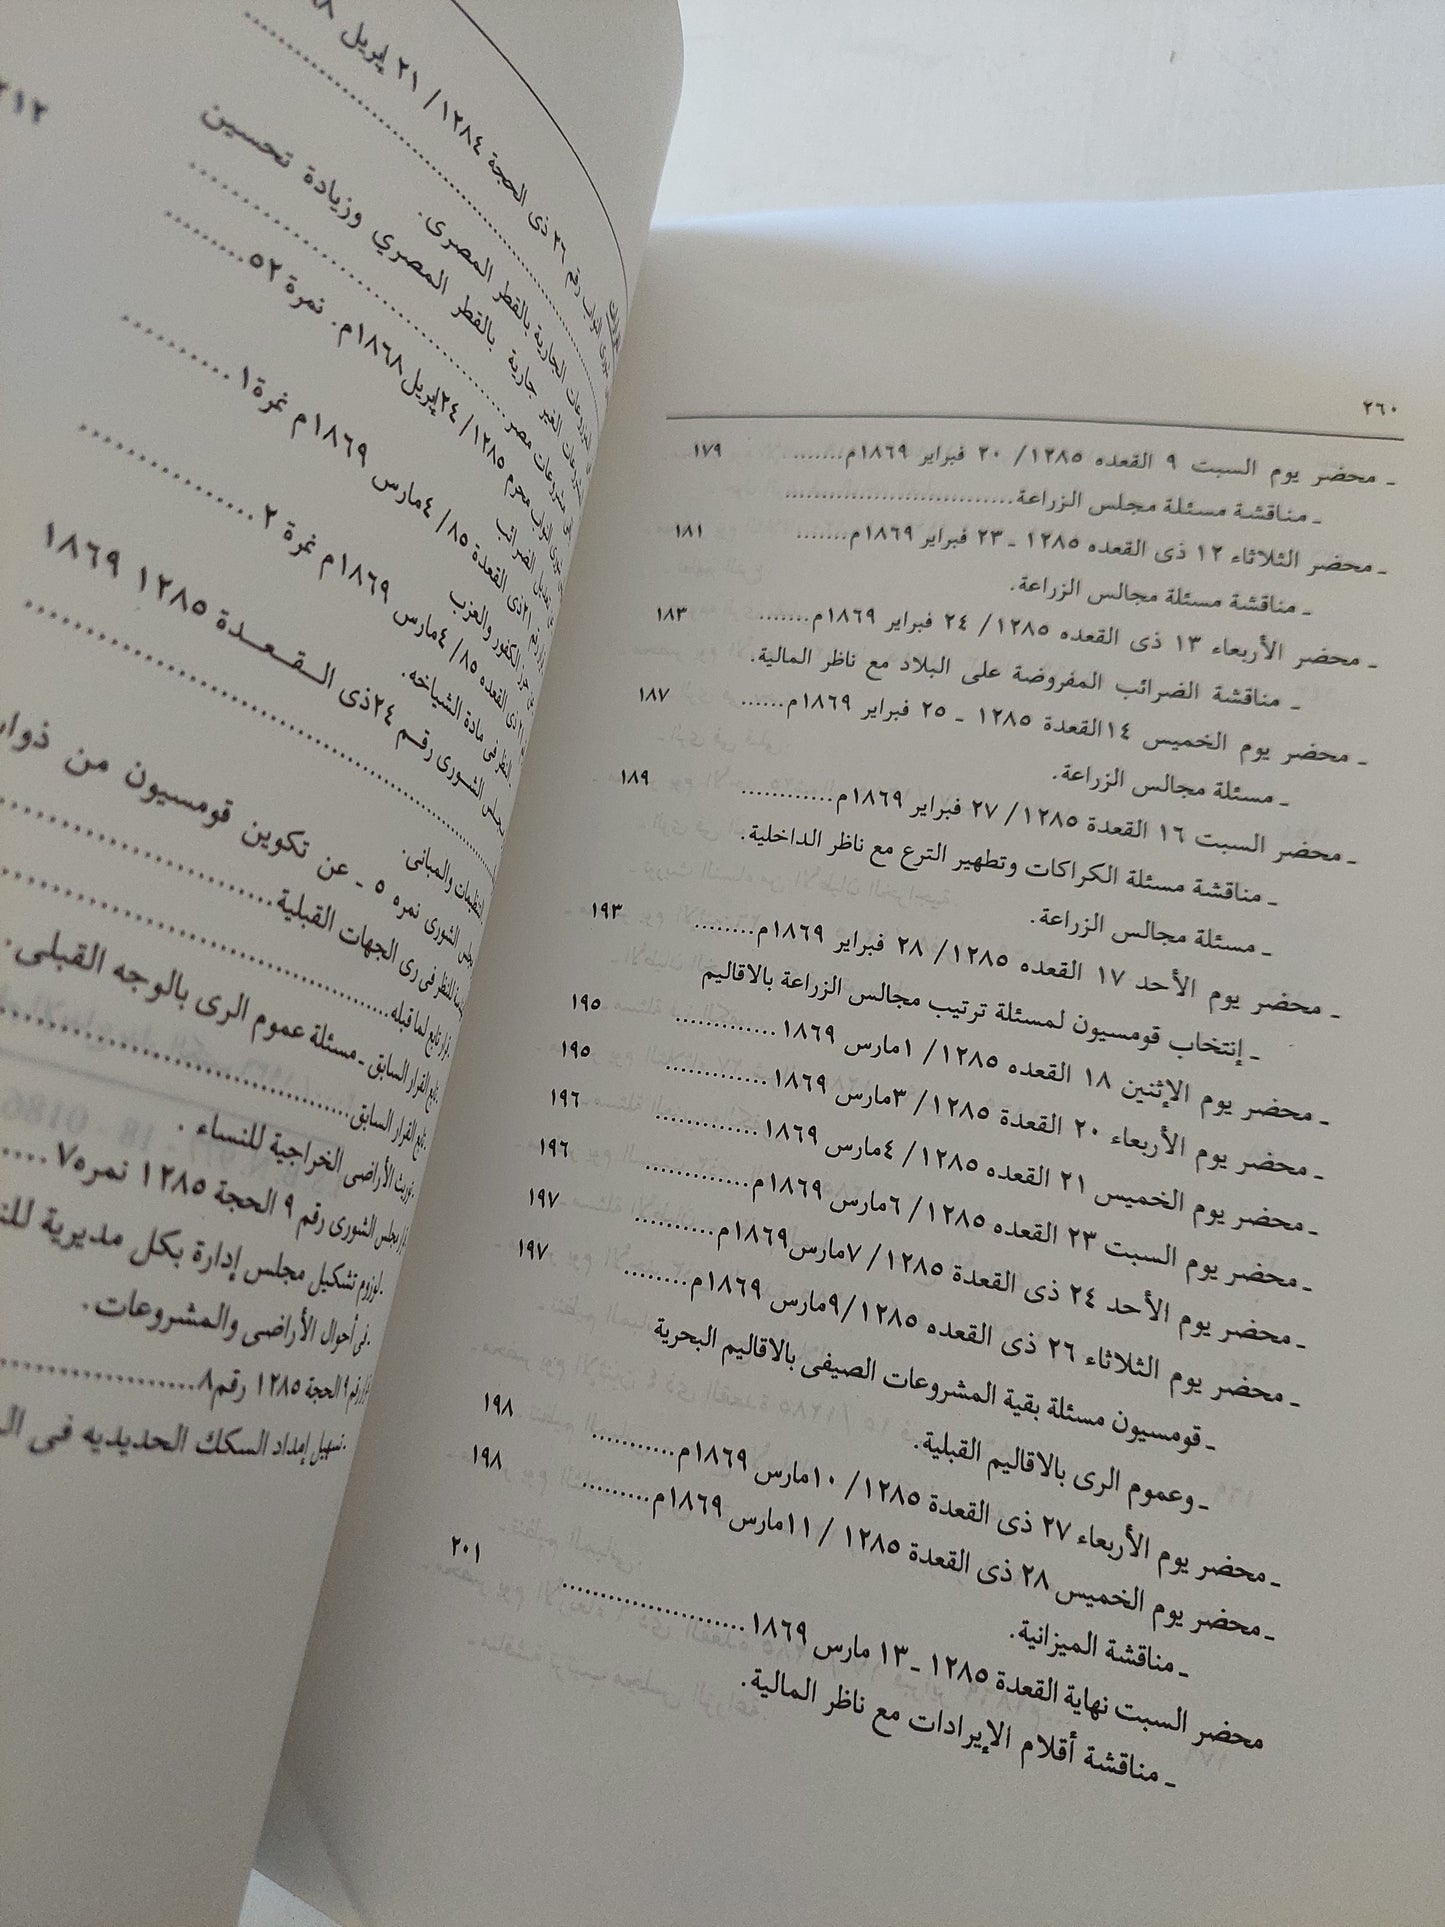 ٢٦٠
ـ محضر يوم السبت ٩ القعده ١٢٨٥/ ٢٠ فبراير ١٨٦٩م........ ١٧٩
ـ مناقشة مسئلة مجلس الزراعة..............................
ـ محضر الثلاثاء ١٢ ذى القعده ١٢٨٥ ـ ٢٣ فبراير ١٨٦٩م....... ١٨١
ـ مناقشة مسئلة مجالس الزراعة.
ـ محضر الأربعاء ١٣ ذى القعده ١٢٨٥/ ٢٤ فبراير ١٨٦٩م....... ١٨٣
ـ مناقشة الضرائب المفروضة على البلاد مع ناظر المالية.
ـ محضر يوم الخميس ١٤القعدة ١٢٨٥ ـ ٢٥ فبراير ١٨٦٩م...... ١٨٧
ـ مسئلة مجالس الزراعة.
ـ محضر السبت ١٦ القعدة ١٢٨٥/ ٢٧ فبراير ١٨٦٩م............ ١٨٩
ـ مناقشة مسئلة الكراكات وتطهير الترع مع ناظر الداخلية.
ـ مسئلة مجالس الزراعة.
ـ محضر يوم الأحد ١٧ القعده ١٢٨٥/ ٢٨ فبراير ١٨٦٩م........ ١٩٣
ـ إنتخاب قومسيون لمسئلة ترتيب مجالس الزراعة بالاقاليم
ـ محضر يوم الإثنين ١٨ القعده ١٢٨٥/ ١مارس ١٨٦٩............. ١٩٥
ـ محضر يوم الأربعاء ٢٠ القعدة ١٢٨٥/ ٣مارس ١٨٦٩............. ١٩٥
ـ محضر يوم الخميس ٢١ القعده ١٢٨٥/ ٤مارس ١٨٦٩............. ١٩٦
ـ محضر يوم السبت ٢٣ القعده ١٢٨٥/ ٦مارس ١٨٦٩م............. ١٩٦
ـ محضر يوم الأحد ٢٤ ذى القعدة ١٢٨٥/ ٧مارس١٨٦٩م.......... ١٩٧
ـ محضر يوم الثلاثاء ٢٦ ذى القعده ١٢٨٥/٩مارس ١٨٦٩م........ ١٩٧
ـ قومسيون مسئلة بقية المشروعات الصيفى بالاقاليم البحرية
ـ وعموم الرى بالاقاليم القبلية.
ـ محضر يوم الأربعاء ٢٧ ذى القعدة ١٢٨٥/ ١٠مارس ١٨٦٩م........... ١٩٨
ـ محضر يوم الخميس ٢٨ ذى القعدة ١٢٨٥ /١١مارس ١٨٦٩م......... ١٩٨
ـ مناقشة الميزانية.
محضر السبت نهاية القعدة ١٢٨٥ ـ ١٣ مارس ١٨٦٩....................... ٢٠١
ـ مناقشة أقلام الإيرادات مع ناظر المالية.
رقم ٢٦ ذى الحجة ١٢٨٤/ ٢١ إبريل
الجارية بالقطر المصرى.
الغير جارية بالقطر المصري وزيادة تحسين
مشروعات مصر
محرم ١٢٨٥/ ٢٤إبريل١٨٦٨م. نمرة ٥٢
تعديل الضرائب
٢١ذى القعدة ٨٥/ ٤مارس ١٨٦٩م نمرة١
الكفور والعزب
ذى القعده ٨٥/ ٤مارس ١٨٦٩م نمرة ٢
النظر فى مادة الشياخه.
مجلس الشورى رقم ٢٤ذى القعدة ١٢٨٥ ١٨٦٩
التنظيمات والمبانى.
مجلس الشورى نمره ٥ ـ عن تكوين قومسيون من
للنظر فى رى الجهات القبلية
تابع لما قبله
تابع القرار السابق ـ مسئلة عموم الرى بالوجه القبلى.
تابع القرار السابق
توريث الأراضى الخراجية للنساء.
مجلس الشورى رقم ٩ الحجة ١٢٨٥ نمره٧
لزوم تشكيل مجلس إدارة بكل مديرية
فى أحوال الأراضى والمشروعات.
رقم ٩ الحجة ١٢٨٥ رقم٨
تسهيل إمداد السكك الحديديه فى